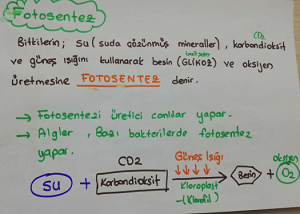 Fotosentez
Bitkilerin; su (suda çözünmüş mineraller), karbondioksit CO₂
ve güneş ışığını kullanarak besin (GLİKOZ) ve oksijen
üretmesine FOTOSENTEZ denir.
→ Fotosentezi üretici canlılar yapar.
→ Algler, Bazı bakterilerde fotosentez
yapar.
CO2 Güneş Işığı oksijen
su + Karbondioksit → Besin + O₂
Kloroplast
(Klorofil)